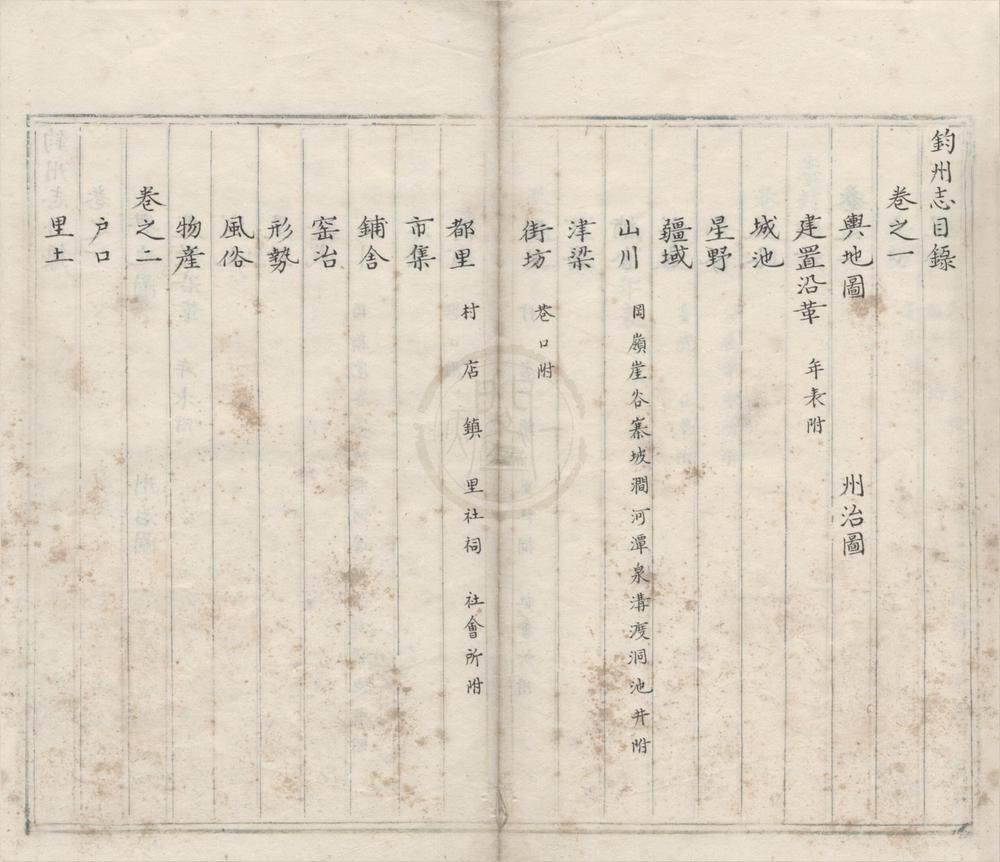 鈞州志目錄
卷之一
輿地圖 州治圖
建置沿革 年表附
城池
星野
疆域
山川 岡嶺崖谷寨坡澗河潭泉溝渡洞池井附
津梁
街坊 巷口附
都里 村店鎮里社祠社會所附
市集
鋪舍
窑冶
形勢
風俗
物產
卷之二
户口
里土